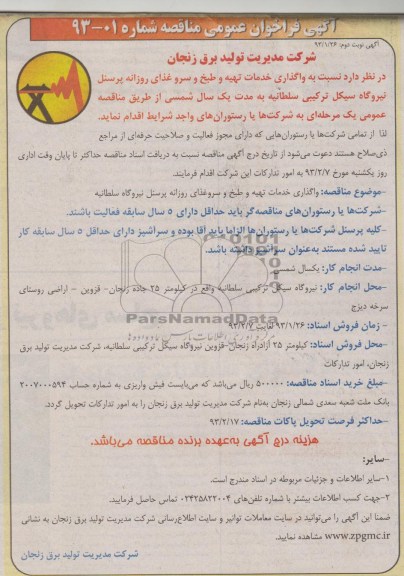 آگهی فراخوان عمومی مناقصه شماره ۰۱-۹۳
آگهی نوبت دوم: ۹۳/۱/۲۶
شرکت مدیریت تولید برق زنجان
در نظر دارد نسبت به واگذاری خدمات تهیه و طبخ و سرو غذای روزانه پرسنل
نیروگاه سیکل ترکیبی سلطانیه به مدت یک سال شمسی از طریق مناقصه
عمومی یک مرحله‌ای به شرکت‌ها یا رستوران‌های واجد شرایط اقدام نماید.
لذا از تمامی شرکت‌ها یا رستوران‌هایی که دارای مجوز فعالیت و صلاحیت حرفه‌ای از مراجع
ذی‌صلاح هستند دعوت می‌شود از تاریخ درج آگهی مناقصه نسبت به دریافت اسناد مناقصه حداکثر تا پایان وقت اداری
روز یکشنبه مورخ ۹۳/۲/۷ به امور تدارکات این شرکت اقدام فرمایند.
-موضوع مناقصه: واگذاری خدمات تهیه و طبخ و سروغذای روزانه پرسنل نیروگاه سلطانیه
-شرکت‌ها یا رستوران‌های مناقصه‌گر باید حداقل دارای ۵ سال سابقه فعالیت باشند.
-کلیه پرسنل شرکت‌ها یا رستوران‌ها الزاما باید آقا بوده و سرآشپز دارای حداقل ۵ سال سابقه کار
تایید شده مستند به‌عنوان سرآشپز داشته باشد.
-مدت انجام کار: یکسال شمسی
-محل انجام کار: نیروگاه سیکل ترکیبی سلطانیه واقع در کیلومتر ۲۵ جاده زنجان- قزوین - اراضی روستای
سرخه دیزج
- زمان فروش اسناد: ۹۳/۱/۲۶ لغایت ۹۳/۲/۷
-محل فروش اسناد: کیلومتر ۲۵ آزادراه زنجان-قزوین نیروگاه سیکل ترکیبی سلطانیه، شرکت مدیریت تولید برق
زنجان، امور تدارکات
-مبلغ خرید اسناد مناقصه: ۵۰۰۰۰۰ ریال می‌باشد که می‌بایست فیش واریزی به شماره حساب ۲۰۰۷۰۰۰۵۹۴
بانک ملت شعبه سعدی شمالی زنجان به‌نام شرکت مدیریت تولید برق زنجان را به امور تدارکات تحویل گردد.
-حداکثر فرصت تحویل پاکات مناقصه: ۹۳/۲/۱۷
هزینه درج آگهی به‌عهده برنده مناقصه می‌باشد.
-سایر:
۱-سایر اطلاعات و جزئیات مربوطه در اسناد مندرج است.
۲-جهت کسب اطلاعات بیشتر با شماره تلفن‌های ۰۲۴۲۵۸۲۲۰۰۴ تماس حاصل فرمایید.
ضمنا این آگهی را می‌توانید در سایت معاملات توانیر و سایت اطلاع‌رسانی شرکت مدیریت تولید برق زنجان به نشانی
www.zpgmc.ir مشاهده نمایید.
شرکت مدیریت تولید برق زنجان
ParsNamadData